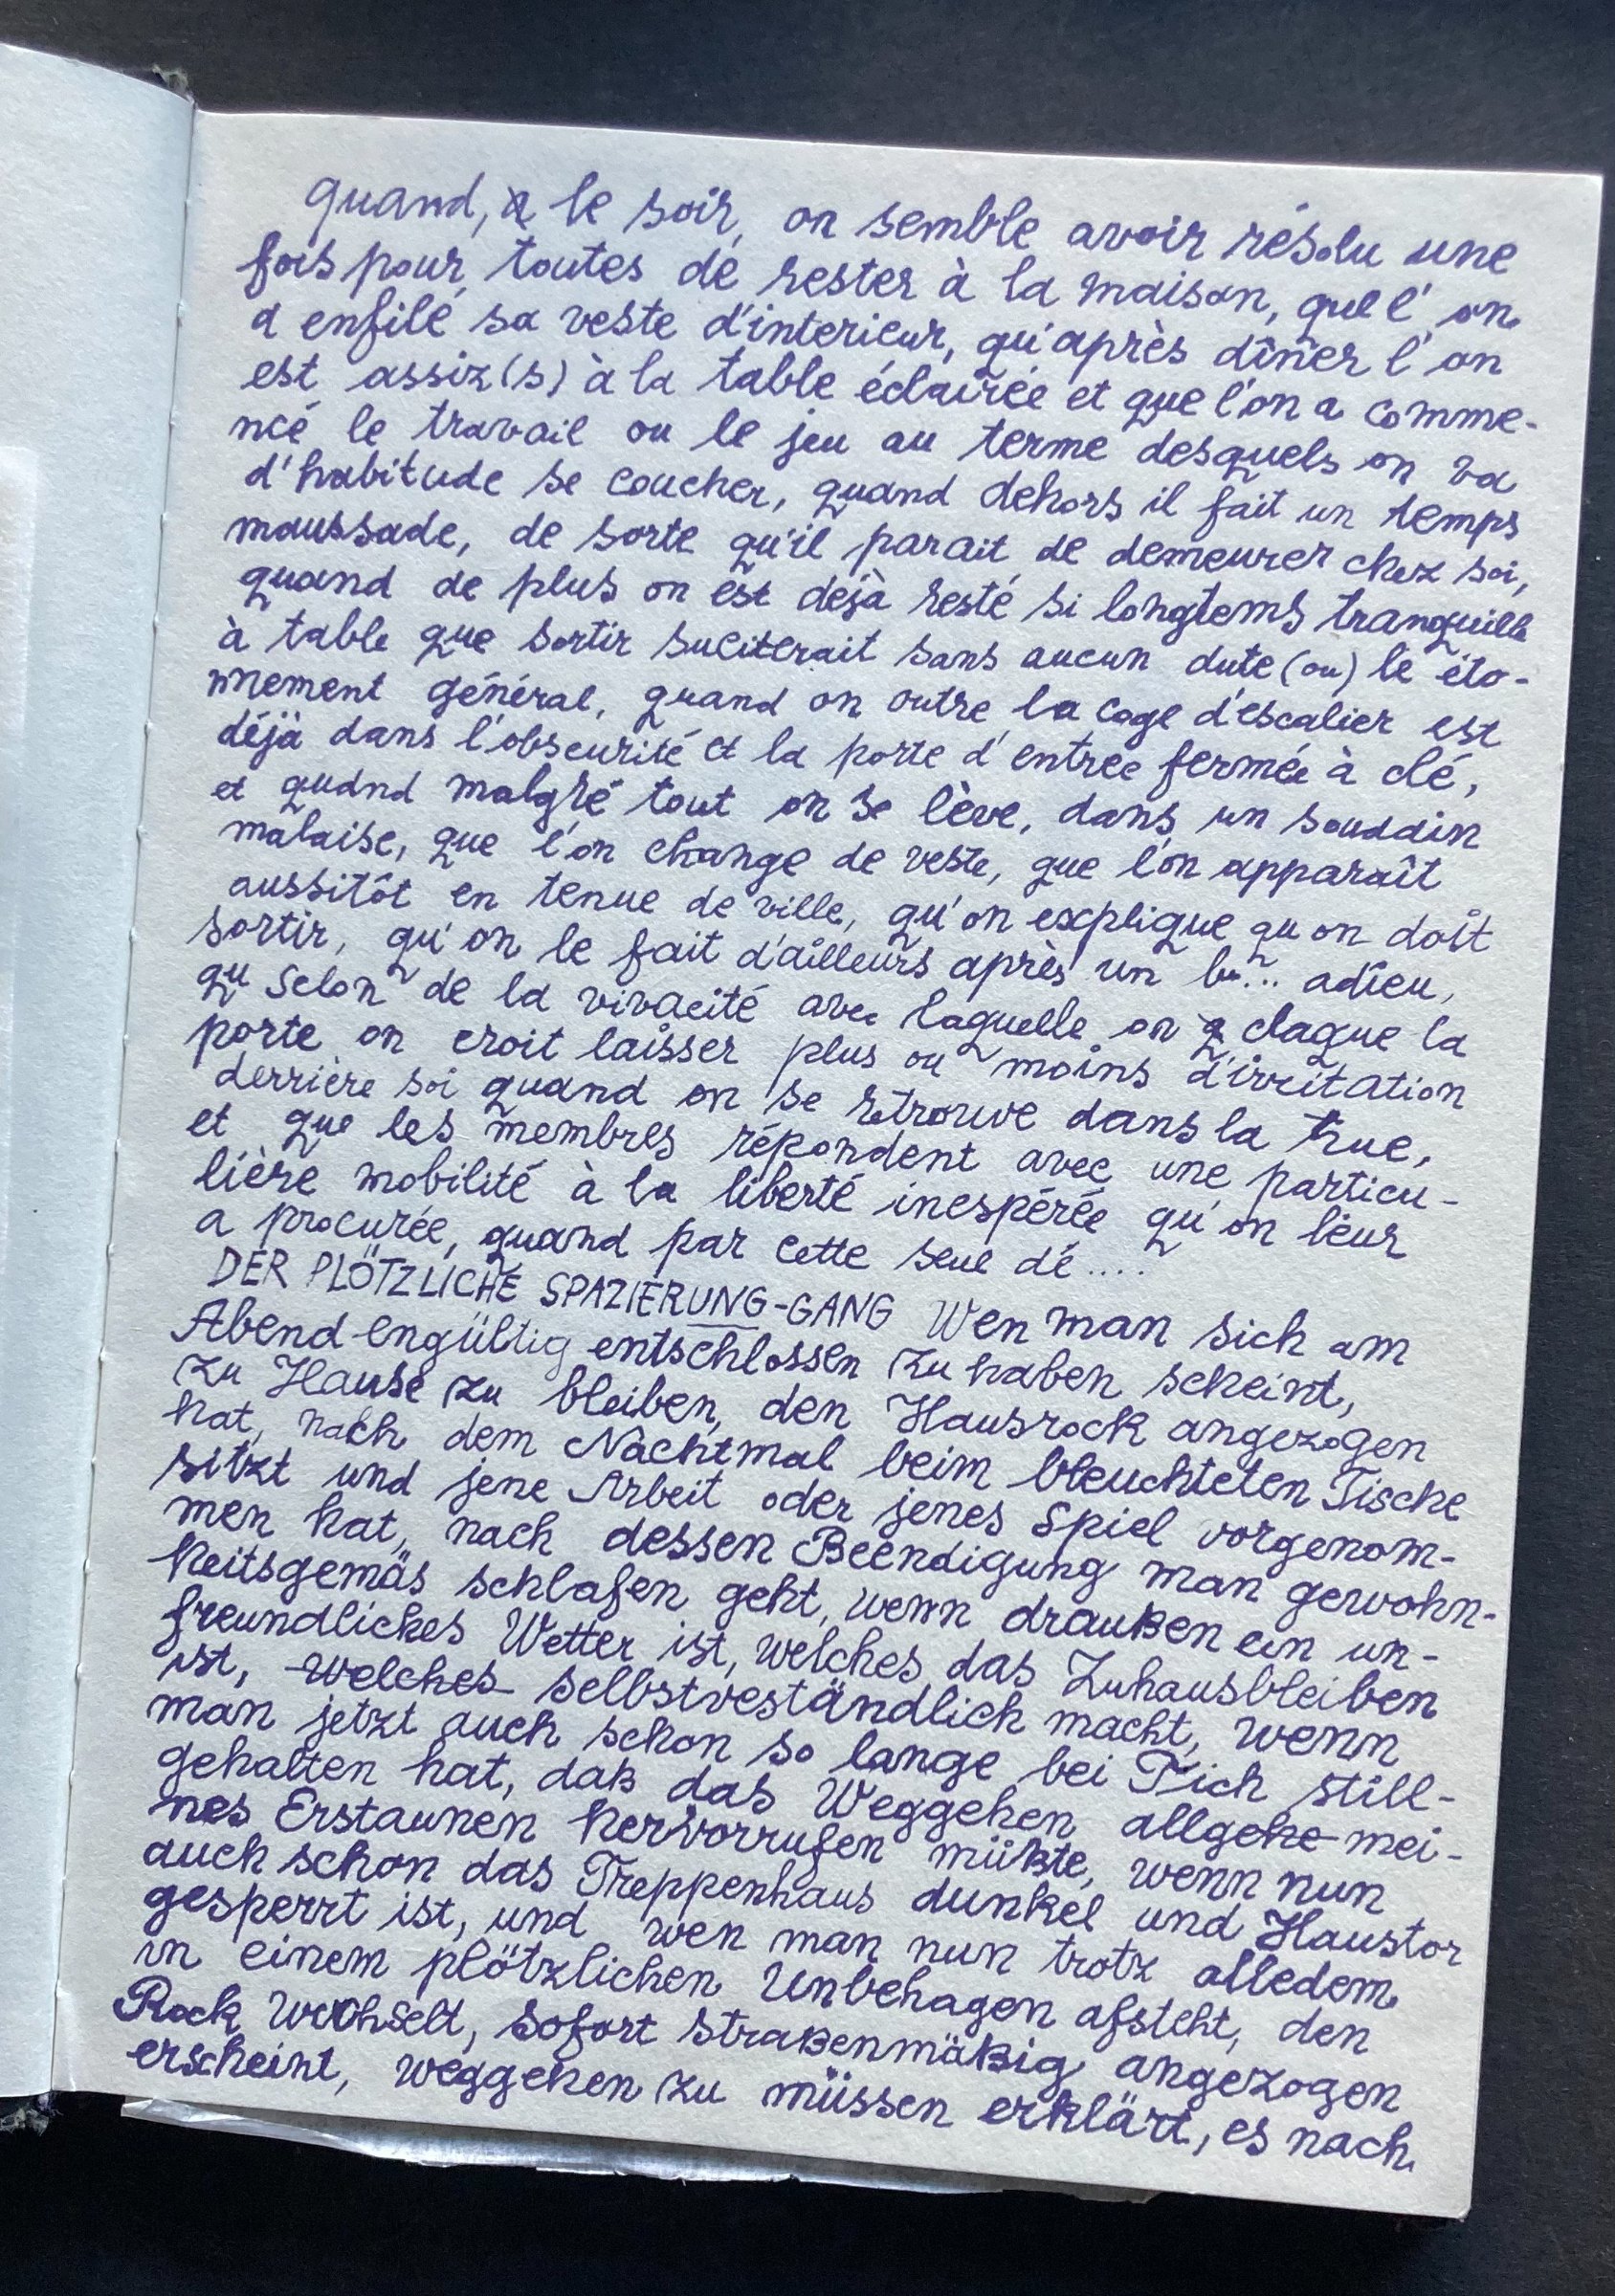 quand, le soir, on semble avoir résolu une
fois pour toutes de rester à la maison, que l'on
a enfilé sa veste d'interieur, qu'après dîner l'on
est assiz(s) à la table éclairée et que l'on a comme-
ncé le travail ou le jeu au terme desquels on va
d'habitude se coucher, quand dehors il fait un temps
maussade, de sorte qu'il parait de demeurer chez soi,
quand de plus on est déjà resté si longtems tranquille
à table que sortir suciterait sans aucun dute (ou) le éto-
nnement général, quand on outre la cage d'escalier est
déjà dans l'obscurité et la porte d'entrée fermée à clé,
et quand malgré tout on se lève, dans un souddin
malaise, que l'on change de veste, que l'on apparaît
aussitôt en tenue de ville, qu'on explique qu'on doît
sortir, qu'on le fait d'ailleurs après un b... adieu,
qu selon de la vivacité avec laquelle on claque la
porte on croit laisser plus ou moins d'irritation
derrière soi quand on se retrouve dans la rue,
et que les membres répondent avec une particu-
lière mobilité à la liberté inespérée qu'on leur
a procurée, quand par cette seue dé....
DER PLÖTZLICHE SPAZIERUNG-GANG Wen man sich am
Abend engültig entschlossen zu haben scheint,
zu Hause zu bleiben, den Hausrock angezogen
hat, nach dem Nachtmal beim bleuchteten Tische
sitzt und jene Arbeit oder jenes Spiel vorgenom-
men hat, nach dessen Beendigung man gewohn-
heitsgemäs schlafen geht, wenn draußen ein un-
freundliches Wetter ist, welches das Zuhausbleiben
ist, welches selbstveständlich macht, wenn
man jetzt auch schon so lange bei Tich still-
gehalten hat, daß das Weggehen allgehe-mei-
nes Erstaunen hervorrufen müßte, wenn nun
auch schon das Treppenhaus dunkel und Haustor
gesperrt ist, und wen man nun trotz alledem
in einem plötzlichen Unbehagen afsteht, den
Rock wechselt, sofort straßenmäßig angezogen
erscheint, weggehen zu müssen erklärt, es nach